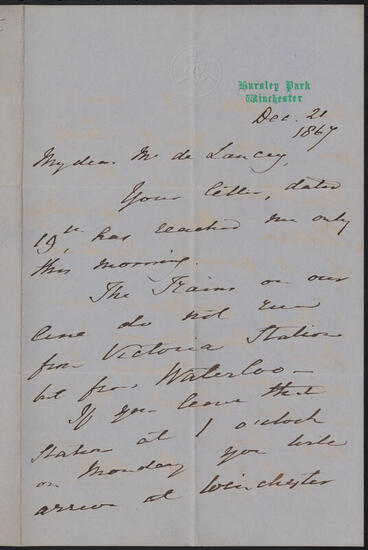 Hursley Park
Winchester
Dec. 21
1867
My dear Mr de Lancey,
Your letter, dated
19th, has reached me only
this morning.
The Trains on our
line do not run
from Victoria Station
but from Waterloo —
If you leave that
Station at 1 o'clock
on Monday you will
arrive at Winchester